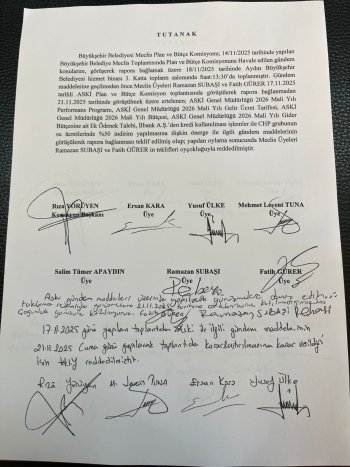 T U T A N A K
Büyükşehir Belediyesi Meclis Plan ve Bütçe Komisyonu; 14/11/2025 tarihinde yapılan
Büyükşehir Belediye Meclis Toplantısında Plan ve Bütçe Komisyonuna Havale edilen gündem
konularını, görüşerek rapora bağlamak üzere 18/11/2025 tarihinde Aydın Büyükşehir
Belediyesi hizmet binası 3. Katta toplantı salonunda Saat:13:30'da toplanmıştır. Gündem
maddelerine geçilmeden önce Meclis Üyeleri Ramazan SUBAŞI ve Fatih GÜRER 17.11.2025
tarihli ASKİ Plan ve Bütçe Komisyon toplantısında görüşülerek rapora bağlanmadan
21.11.2025 tarihinde görüşülmek üzere ertelenen; ASKİ Genel Müdürlüğü 2026 Mali Yılı
Performans Programı, ASKİ Genel Müdürlüğü 2026 Mali Yılı Gelir Ücret Tarifesi, ASKİ
Genel Müdürlüğü 2026 Mali Yılı Bütçesi, ASKİ Genel Müdürlüğü 2026 Mali Yılı Gider
Bütçesine ait Ek Ödenek Talebi, İlbank A.Ş.'den kredi kullanılması işlemler ile CHP grubunun
su ücretlerinde %50 indirim yapılmasına ilişkin önerge ile ilgili gündem maddelerinin
görüşülerek rapora bağlanması teklif edilmiş olup; yapılan oylama sonucunda Meclis Üyeleri
Ramazan SUBAŞI ve Fatih GÜRER'in teklifleri oyçokluğuyla reddedilmiştir.
Rıza YÖRÜYEN Ersan KARA Yusuf ÜLKE Mehmet Levent TUNA
Komisyon Başkanı Üye Üye Üye
Salim Tümer APAYDIN Ramazan SUBAŞI Fatih GÜRER
Üye Üye Üye
Aski gündem maddeleri üzerinde
21.11.2025
Ramazan SUBAŞI
17.11.2025 günü yapılan toplantıda Aski ile ilgili gündem maddelerinin
21.11.2025 Cuma günü yapılacak toplantıda kararlaştırılmasına karar verildiği
için teklif reddedilmiştir.
Rıza Yörüyen M. Levent TUNA Ersan Kara Yusuf Ülke